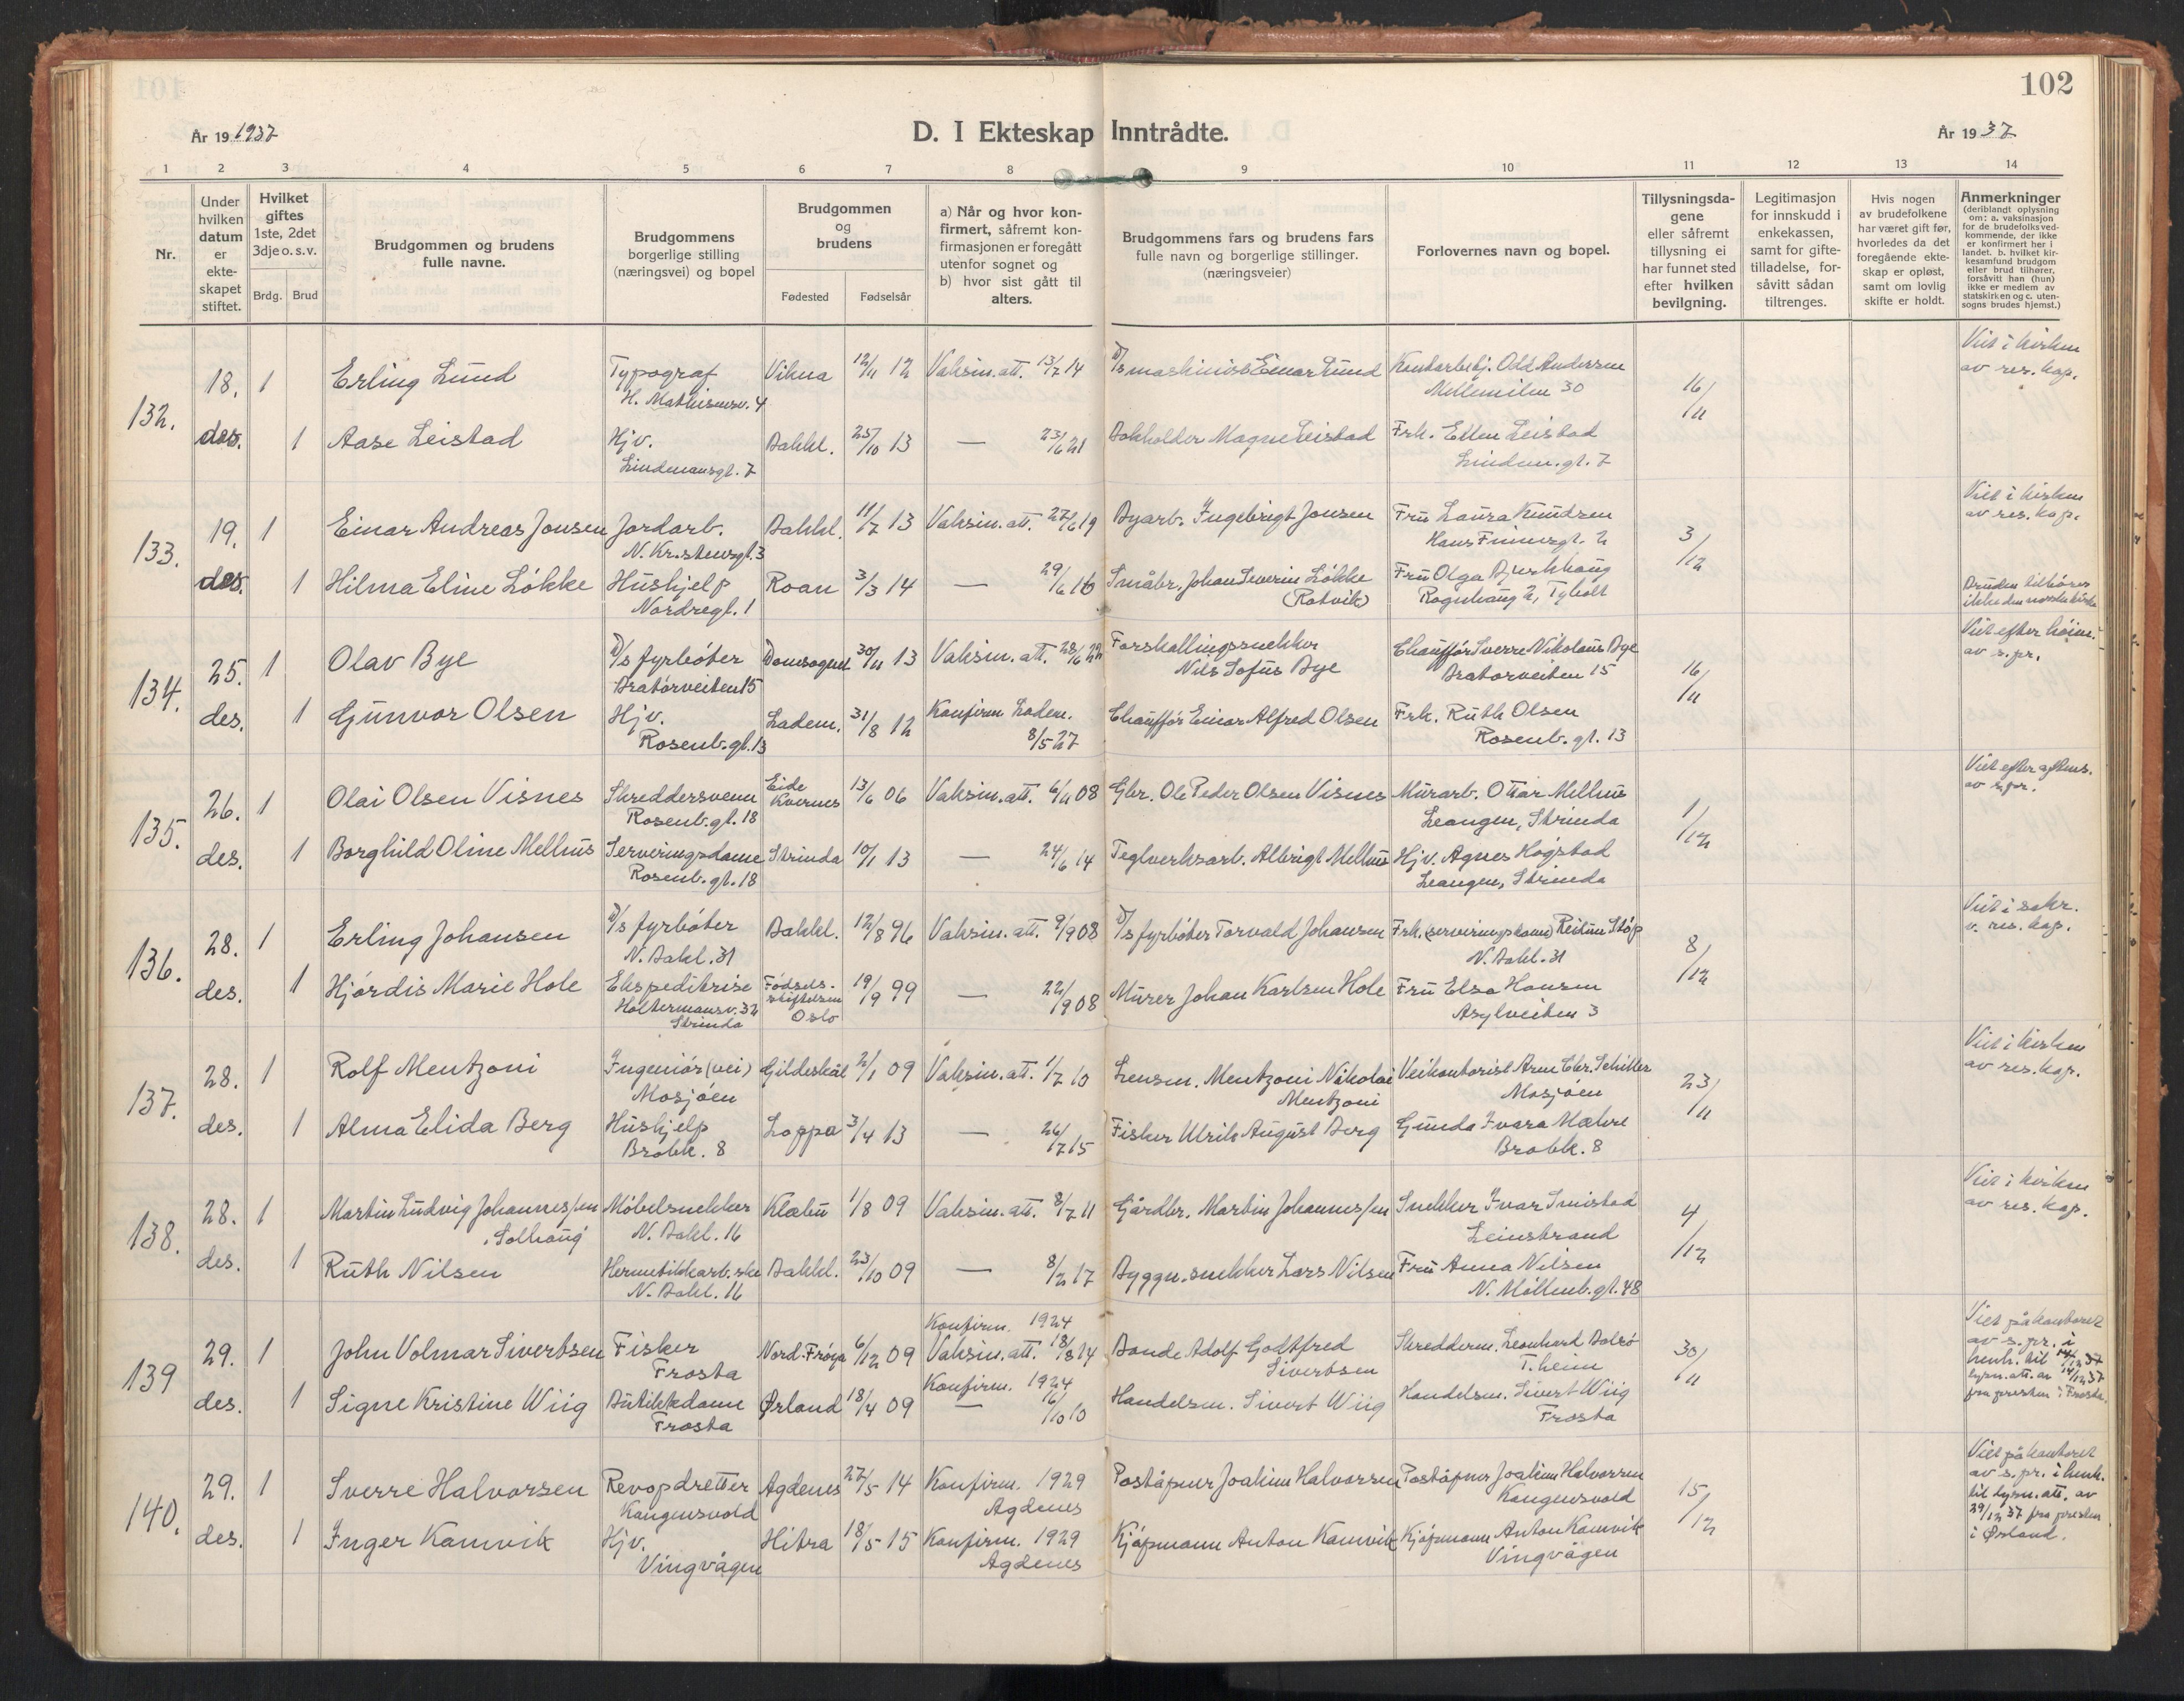 102
År 19 1937
D. I Ekteskap Inntrådte.
År 19 37
1 2 3 4 5 6 7 8 9 10 11 12 13 14
Nr.
Under hvilken datum er ekte- skapet stiftet.
Hvilket giftes 1ste, 2det 3dje o. s. v.
Brdg. Brud
Brudgommen og brudens fulle navne.
Brudgommens borgerlige stilling (næringsvei) og bopel
Brudgommen og brudens
Fødested Fødselsår
a) Når og hvor kon- firmert, såfremt kon- firmasjonen er foregått utenfor sognet og b) hvor sist gått til alters.
Brudgommens fars og brudens fars fulle navn og borgerlige stillinger. (næringsveier)
Forlovernes navn og bopel.
Tillysningsda- gene eller såfremt tillysning ei har funnet sted efter hvilken bevilgning.
Legitimasjon for innskudd i enkekassen, samt for gifte- tilladelse, for- såvitt sådan tiltrenges.
Hvis nogen av brudefolkene har været gift før, hvorledes da det foregående ekte- skap er opløst, samt om lovlig skifte er holdt.
Anmerkninger (deriblandt oplysning om: a. vaksinasjon for de brudefolksved- kommende, der ikke er konfirmert her i landet. b. hvilket kir- kesamfund brudgom eller brud tilhører, forsåvitt han (hun) ikke er medlem av statskirken og c. uten- sogns brudes hjemst.)
132. 18. 1 Erling Lund Typograf Vikna 12/11 12 Vaksin. att. 13/7 14 D/s maskinist Einar Lund Kontorarbeidj. Odd Andersen 16/11 Viet i kirken
H. Mathisensv. 4 Mellemilen 30 av res. kap.
des. 1 Aase Leistad Hjv. Bakkl. 25/10 13 — 23/6 21 Bokholder Magne Leistad Frk. Ellen Leistad
Lindemansgt. 7 Lindem. gt. 7
133. 19. 1 Einar Andreas Jonsen Jordarb. Bakkl. 11/7 13 Vaksin. att. 27/6 19 Byarb. Ingebrigt Jonsen Fru Laura Knudsen 3/12 Viet i kirken
N. Kr.stensgt. 3 Hans Finnesgt. 2 av res. kap.
des. 1 Hilma Eline Løkke Hushjelp Roan 3/3 14 — 29/6 16 Småbr. Johan Severin Løkke Fru Olga Bjerkhaug Bruden tilhører
Nordregt. 1 (Ratvik) Rognhaug 2, Tyholt ikke den norske kirke
134. 25. 1 Olav Bye D/s fyrbøter Domsognet 30/11 13 Vaksin. att. 28/6 22 Forskallingssnekker Chauffør Sverre Nikolaus Bye 16/11 Viet efter høim.
Bratørveiten 15 Nils Sofus Bye Bratørveiten 15 av s. pr.
des. 1 Gunvor Olsen Hjv. Ladem. 31/8 12 Konfirm Ladem. Chauffør Einar Alfred Olsen Frk. Ruth Olsen
Rosenb. gt. 13 8/5 27 Rosenb. gt. 13
135. 26. 1 Olai Olsen Visnes Skreddersvenn Eide Kvernes 13/6 06 Vaksin. att. 6/11 08 Gbr. Ole Peder Olsen Visnes Murarb. Ottar Melhus 1/12 Viet efter aftens.
Rosenb. gt. 18 Leangen, Strinda av s. pr.
des. 1 Borghild Oline Melhus Serveringsdame Strinda 10/1 13 — 24/6 14 Teglverksarb. Albrigt Melhus Hjv. Agnes Høgstad
Rosenb. gt. 18 Leangen, Strinda
136. 28. 1 Erling Johansen D/s fyrbøter Bakkl. 12/8 96 Vaksin. att. 9/9 08 D/s fyrbøter Torvald Johansen Frk. (serveringsdame) Reidun Støp 8/12 Viet i sakr.
N. Bakl. 31 N. Bakl. 31 v. res. kap.
des. 1 Hjørdis Marie Hole Ekspeditrise Fødsels- stiftelsen Oslo 19/9 99 — 22/9 08 Murer Johan Karlsen Hole Fru Elsa Hansen
Holtermansv. 32 Strinda Asylveiten 3
137. 28. 1 Rolf Mentzoni Ingeniør (vei) Gildeskål 2/1 09 Vaksin. att. 1/7 10 Lensm. Mentzoni Nikolai Veikontorist Arne Chr. Schiller 23/11 Viet i kirken
Mosjøen Mentzoni Mosjøen av res. kap.
des. 1 Alma Elida Berg Hushjelp Loppa 3/4 13 — 26/7 15 Fisker Ulrik August Berg Gunda Ivara Mæhre
Brobk. 8 Brobk. 8
138. 28. 1 Martin Ludvig Johannessen Møbelsnekker Klæbu 1/8 09 Vaksin. att. 8/7 11 Gårdbr. Martin Johannessen Snekker Ivar Smistad 4/12 Viet i kirken
Solhaug N. Bakl. 16 Leinstrand av res. kap.
des. 1 Ruth Nilsen Hermetikkarb.ske Bakkl. 23/10 09 — 8/2 17 Byggn. snekker Lars Nilsen Fru Anna Nilsen
N. Bakl. 16 N. Møllenb. gt. 48
139 29. 1 John Volmar Sivertsen Fisker Nord-Frøya 6/12 09 Konfirm. 1924 Vaksin. att. 18/8 14 Bonde Adolf Godtfred Skredderm. Leonhard Dalsø 30/11 Viet på kontoret
Frosta Sivertsen T.heim av s. pr. i henh. til
des. 1 Signe Kristine Wiig Butikkdame Ørland 18/4 09 Konfirm. 1924 — 16/10 10 Handelsm. Sivert Wiig Handelsm. Sivert Wiig lysn. att. av 14/12 37
Frosta Frosta fra presten i Frosta.
140. 29. 1 Sverre Halvorsen Revopdretter Agdenes 27/5 14 Konfirm. 1929 Poståpner Joakim Halvorsen Poståpner Joakim Halvorsen 15/12 Viet på kontoret
Kongensvold Agdenes Kongensvold av s. pr. i henh. til lysn. att. av
des. 1 Inger Kamvik Hjv. Hitra 18/5 15 Konfirm. 1929 Kjøpmann Anton Kamvik Kjøpmann Anton Kamvik 29/12 37 fra presten
Vingvågen Agdenes Vingvågen i Ørland.